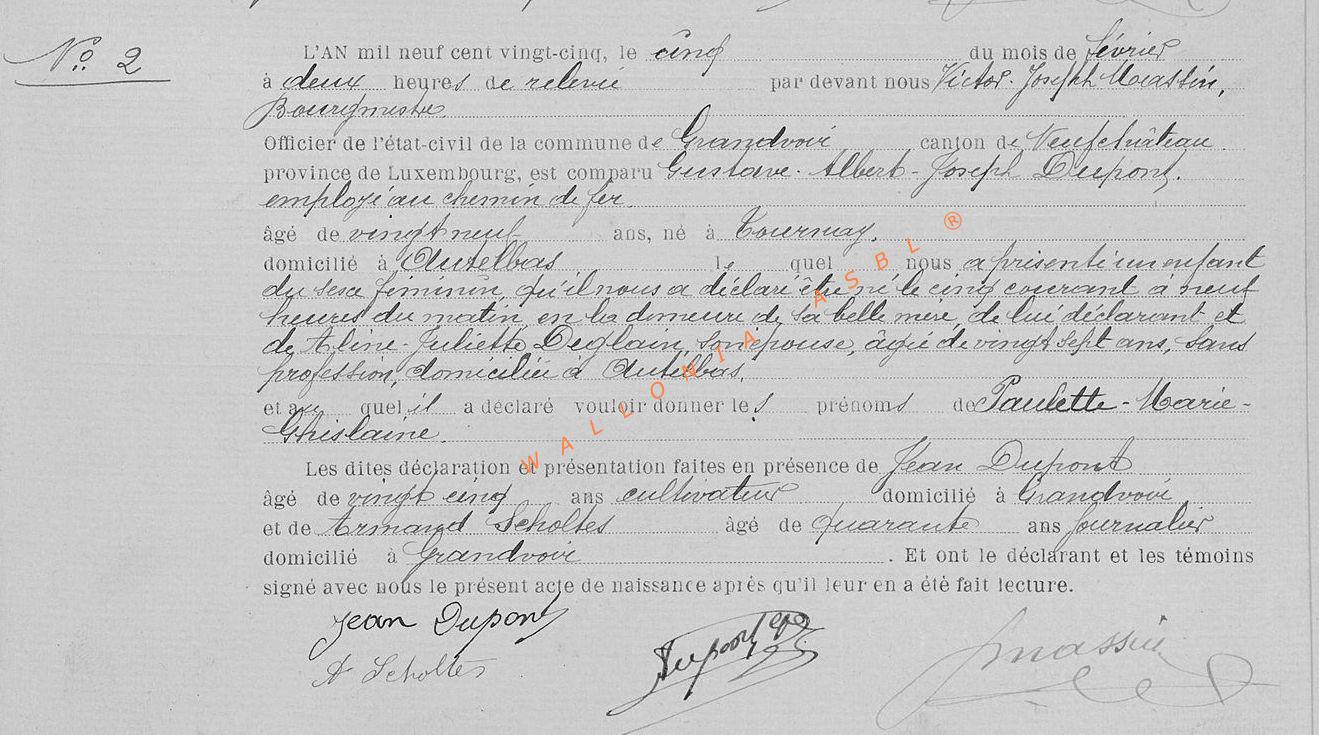 No. 2
L'AN mil neuf cent vingt-cinq, le cinq du mois de février
à deux heures de relevée par devant nous Victor-Joseph Massin,
Bourgmestre
Officier de l'état-civil de la commune de Grandvoir canton de Neufchâteau
province de Luxembourg, est comparu Gustave-Albert-Joseph Dupont,
employé au chemin de fer
âgé de vingt neuf ans, né à Tournay,
domicilié à Autelbas lequel nous a présenté un enfant
du sexe féminin, qu'il nous a déclaré être né le cinq courant à neuf
heures du matin en la demeure de sa belle mère, de lui déclarant et
de Aline-Juliette Deglain, son épouse, âgée de vingt sept ans, sans
profession, domiciliée à Autelbas,
et au quel il a déclaré vouloir donner les prénoms de Paulette-Marie-
Ghislaine
Les dites déclaration et présentation faites en présence de Jean Dupont
âgé de vingt cinq ans cultivateur domicilié à Grandvoir
et de Armand Scholtes âgé de quarante ans journalier
domicilié à Grandvoir. Et ont le déclarant et les témoins
signé avec nous le présent acte de naissance après qu'il leur en a été fait lecture.
Jean Dupont
A Scholtes
Dupont
Massin
WALLONIA ASBL ®